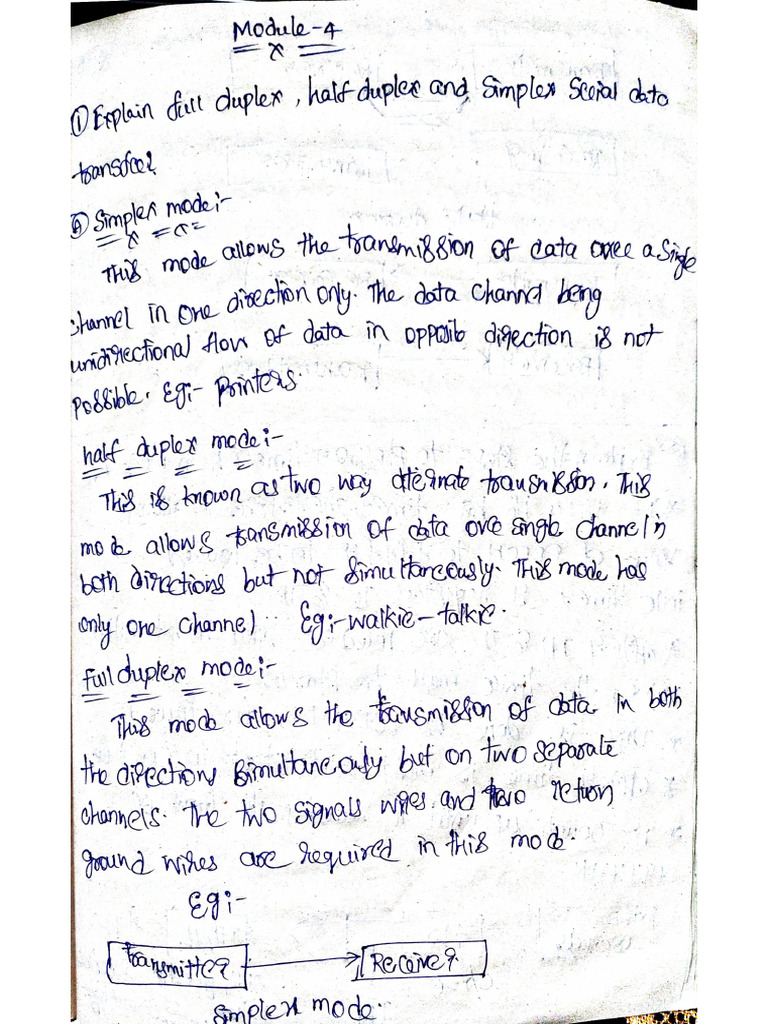 Module-4
① Explain full duplex, half duplex and simplex Serial data
transfer
Ⓐ Simplex mode:-
This mode allows the transmission of data over a single
channel in one direction only. The data channel being
unidirectional flow of data in opposib direction is not
possible. Eg:- Printers.
half duplex mode:-
This is known as two way alternate transmission. This
mode allows transmission of data over single channel in
both directions but not simultaneously. This mode has
only one channel. Eg:- walkie-talkie.
full duplex mode:-
This mode allows the transmission of data in both
the directions simultaneously but on two separate
channels. The two signals wires and two return
ground wires are required in this mode.
Eg:-
transmitter Receiver
Simplex mode.